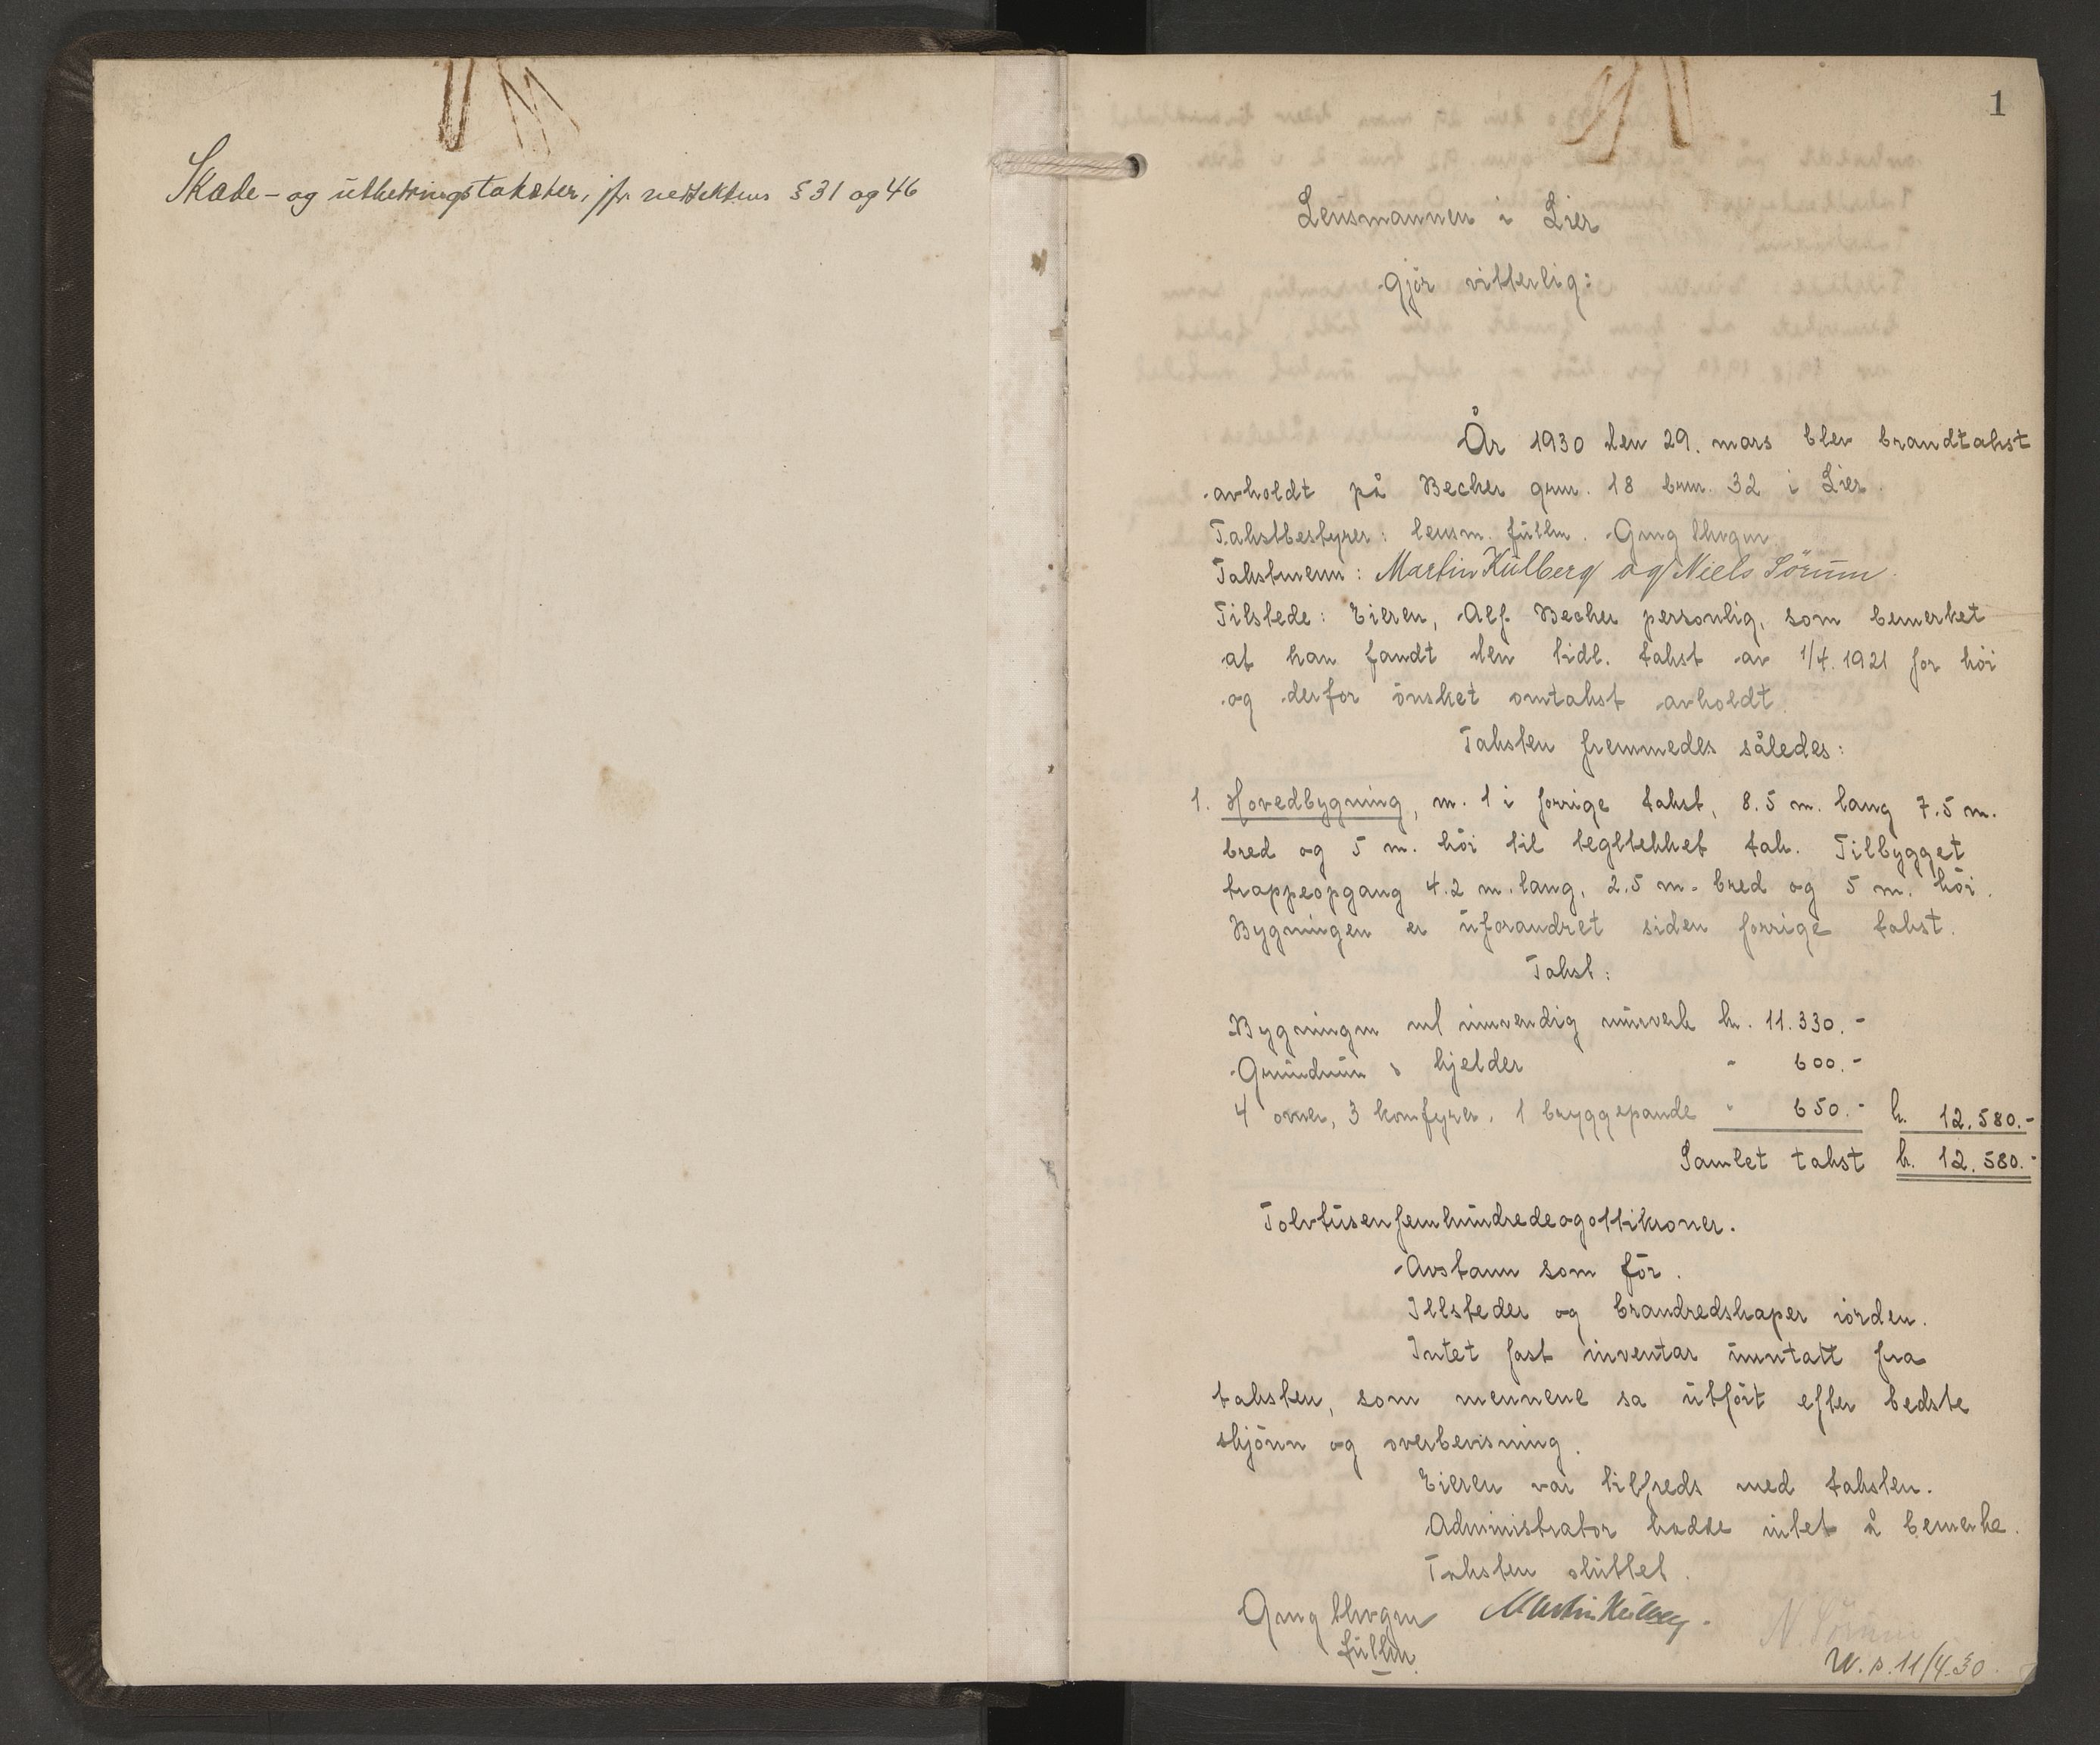 Skade- og utbetringstakster, jfr. vedtektens § 31 og 46
1
Lensmannen i Lier
Gjör vitterlig:
År 1930 den 29. mars blev brandtakst
avholdt på Becker gnr. 18 bnr. 32 i Lier.
Takstbestyrer: lensm. fullm.
Takstmenn: Martin Kulberg og Niels Sörum.
Tilstede: Eieren, Alf Becker personlig, som bemerket
at han fandt den tidl. takst av 1/4. 1921 for höi
og derfor önsket omtakst avholdt.
Taksten fremmedes således:
1. Hovedbygning, m. 1 i forrige takst, 8.5 m. lang 7.5 m.
bred og 5 m. höi til tegltekket tak. Tilbygget
trappeopgang 4.2 m. lang, 2.5 m. bred og 5 m. höi.
Bygningen er uforandret siden forrige takst.
Takst:
Bygningen m/ innvendig murverk kr. 11.330.-
Grundmur & kjelder " 600.-
4 ovner, 3 komfyrer, 1 bryggepande " 650.- kr. 12.580.-
Samlet takst kr. 12.580.-
Tolvtusenfemhundredeogottikroner.
Avstann som för.
Illsteder og brandredskaper iorden.
Intet fast inventar unntatt fra
taksten, som mennene sa utfört efter bedste
skjönn og overbevisning.
Eieren var tilfreds med taksten.
Administrator hadde intet å bemerke.
Taksten sluttet.
Martin Kulberg. N Sörum
fullm.
U. s. 11/4.30.